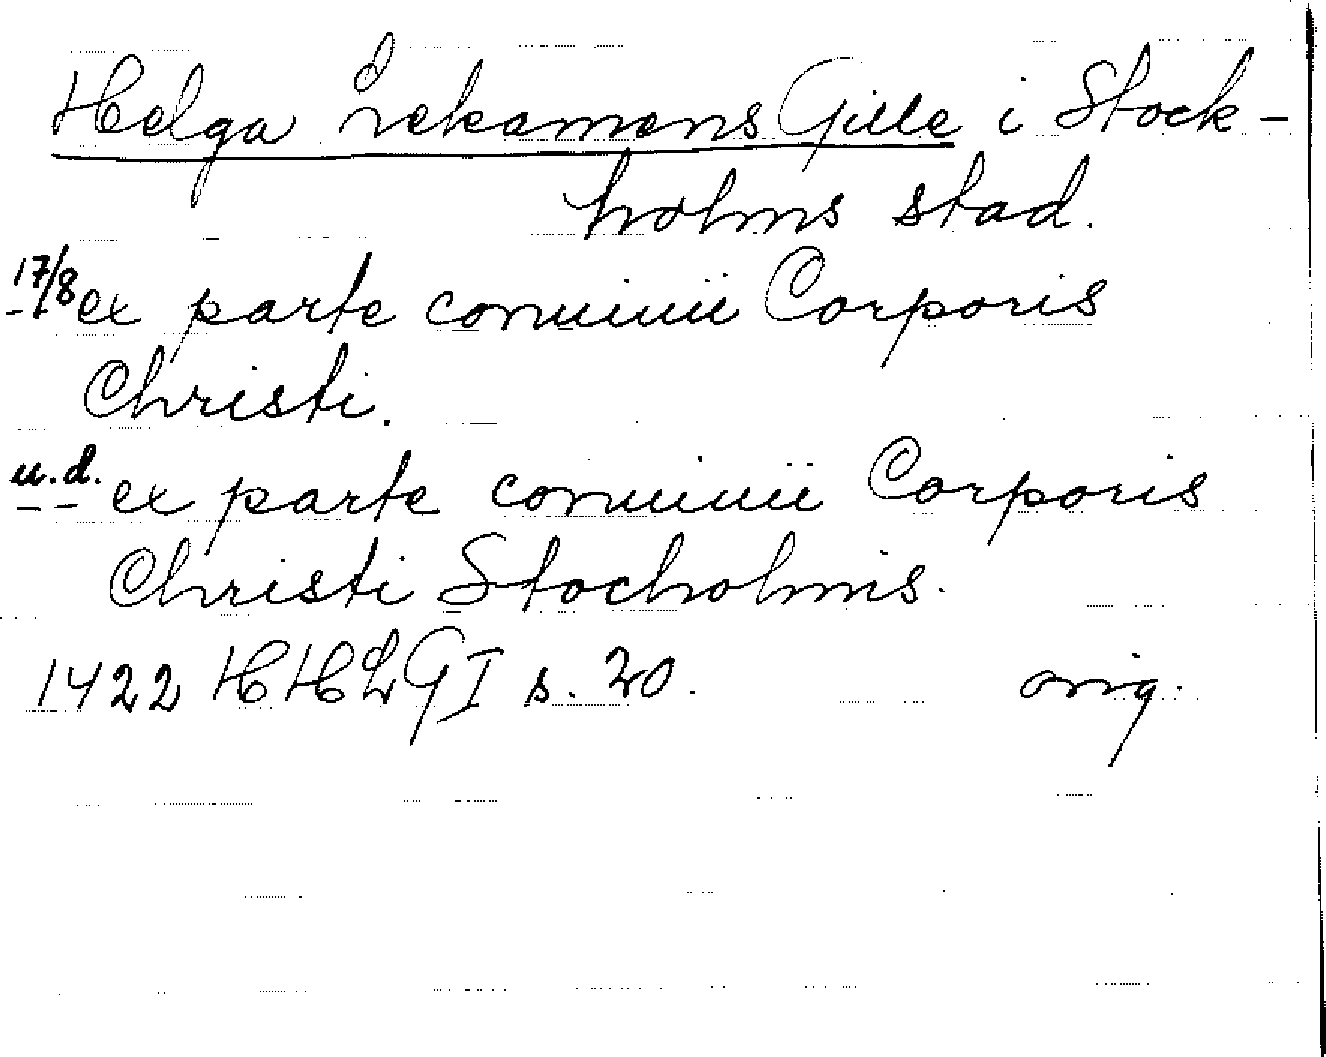 Helga Lekamens Gille i Stock-
holms stad.
17/8 ex parte conuiuii Corporis
Christi.
u.d. ex parte conuiuii Corporis
Christi Stocholmis.
1422 HHLG I s. 20. orig.